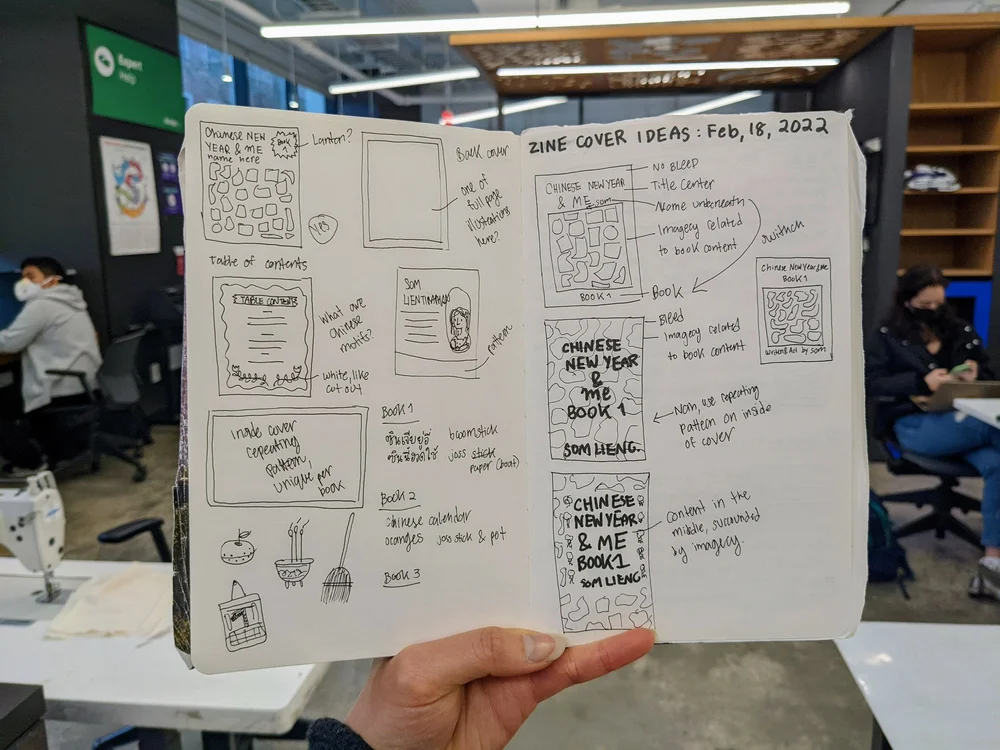 Expert
Help
Chinese NEW
YEAR & ME
name here
Book
1
Lantern?
YES
Back cover
one of
full page
illustrations
here?
Table of contents
TABLE CONTENTS
What are
Chinese
motifs?
white, like
cut out
SOM
pattern
inside cover
repeating
pattern,
unique per
book
Book 1
broomstick
joss stick
paper (boat)
Book 2
Chinese calendar
oranges joss stick & pot
Book 3
ZINE COVER IDEAS: Feb, 18, 2022
CHINESE NEW YEAR
& ME som
BOOK 1
NO BLEED
Title Center
Name underneath
Imagery related
to book content
Book
switch
Chinese New Year & Me
BOOK 1
Written & Art by som
CHINESE
NEW YEAR
&
me
BOOK 1
SOM LIENG.
Bleed
Imagery related
to book content
Nah, use repeating
pattern on inside
of cover
CHINESE
NEW YEAR
& ME
BOOK 1
SOM LIENG
content in the
middle, surrounded
by imagery.